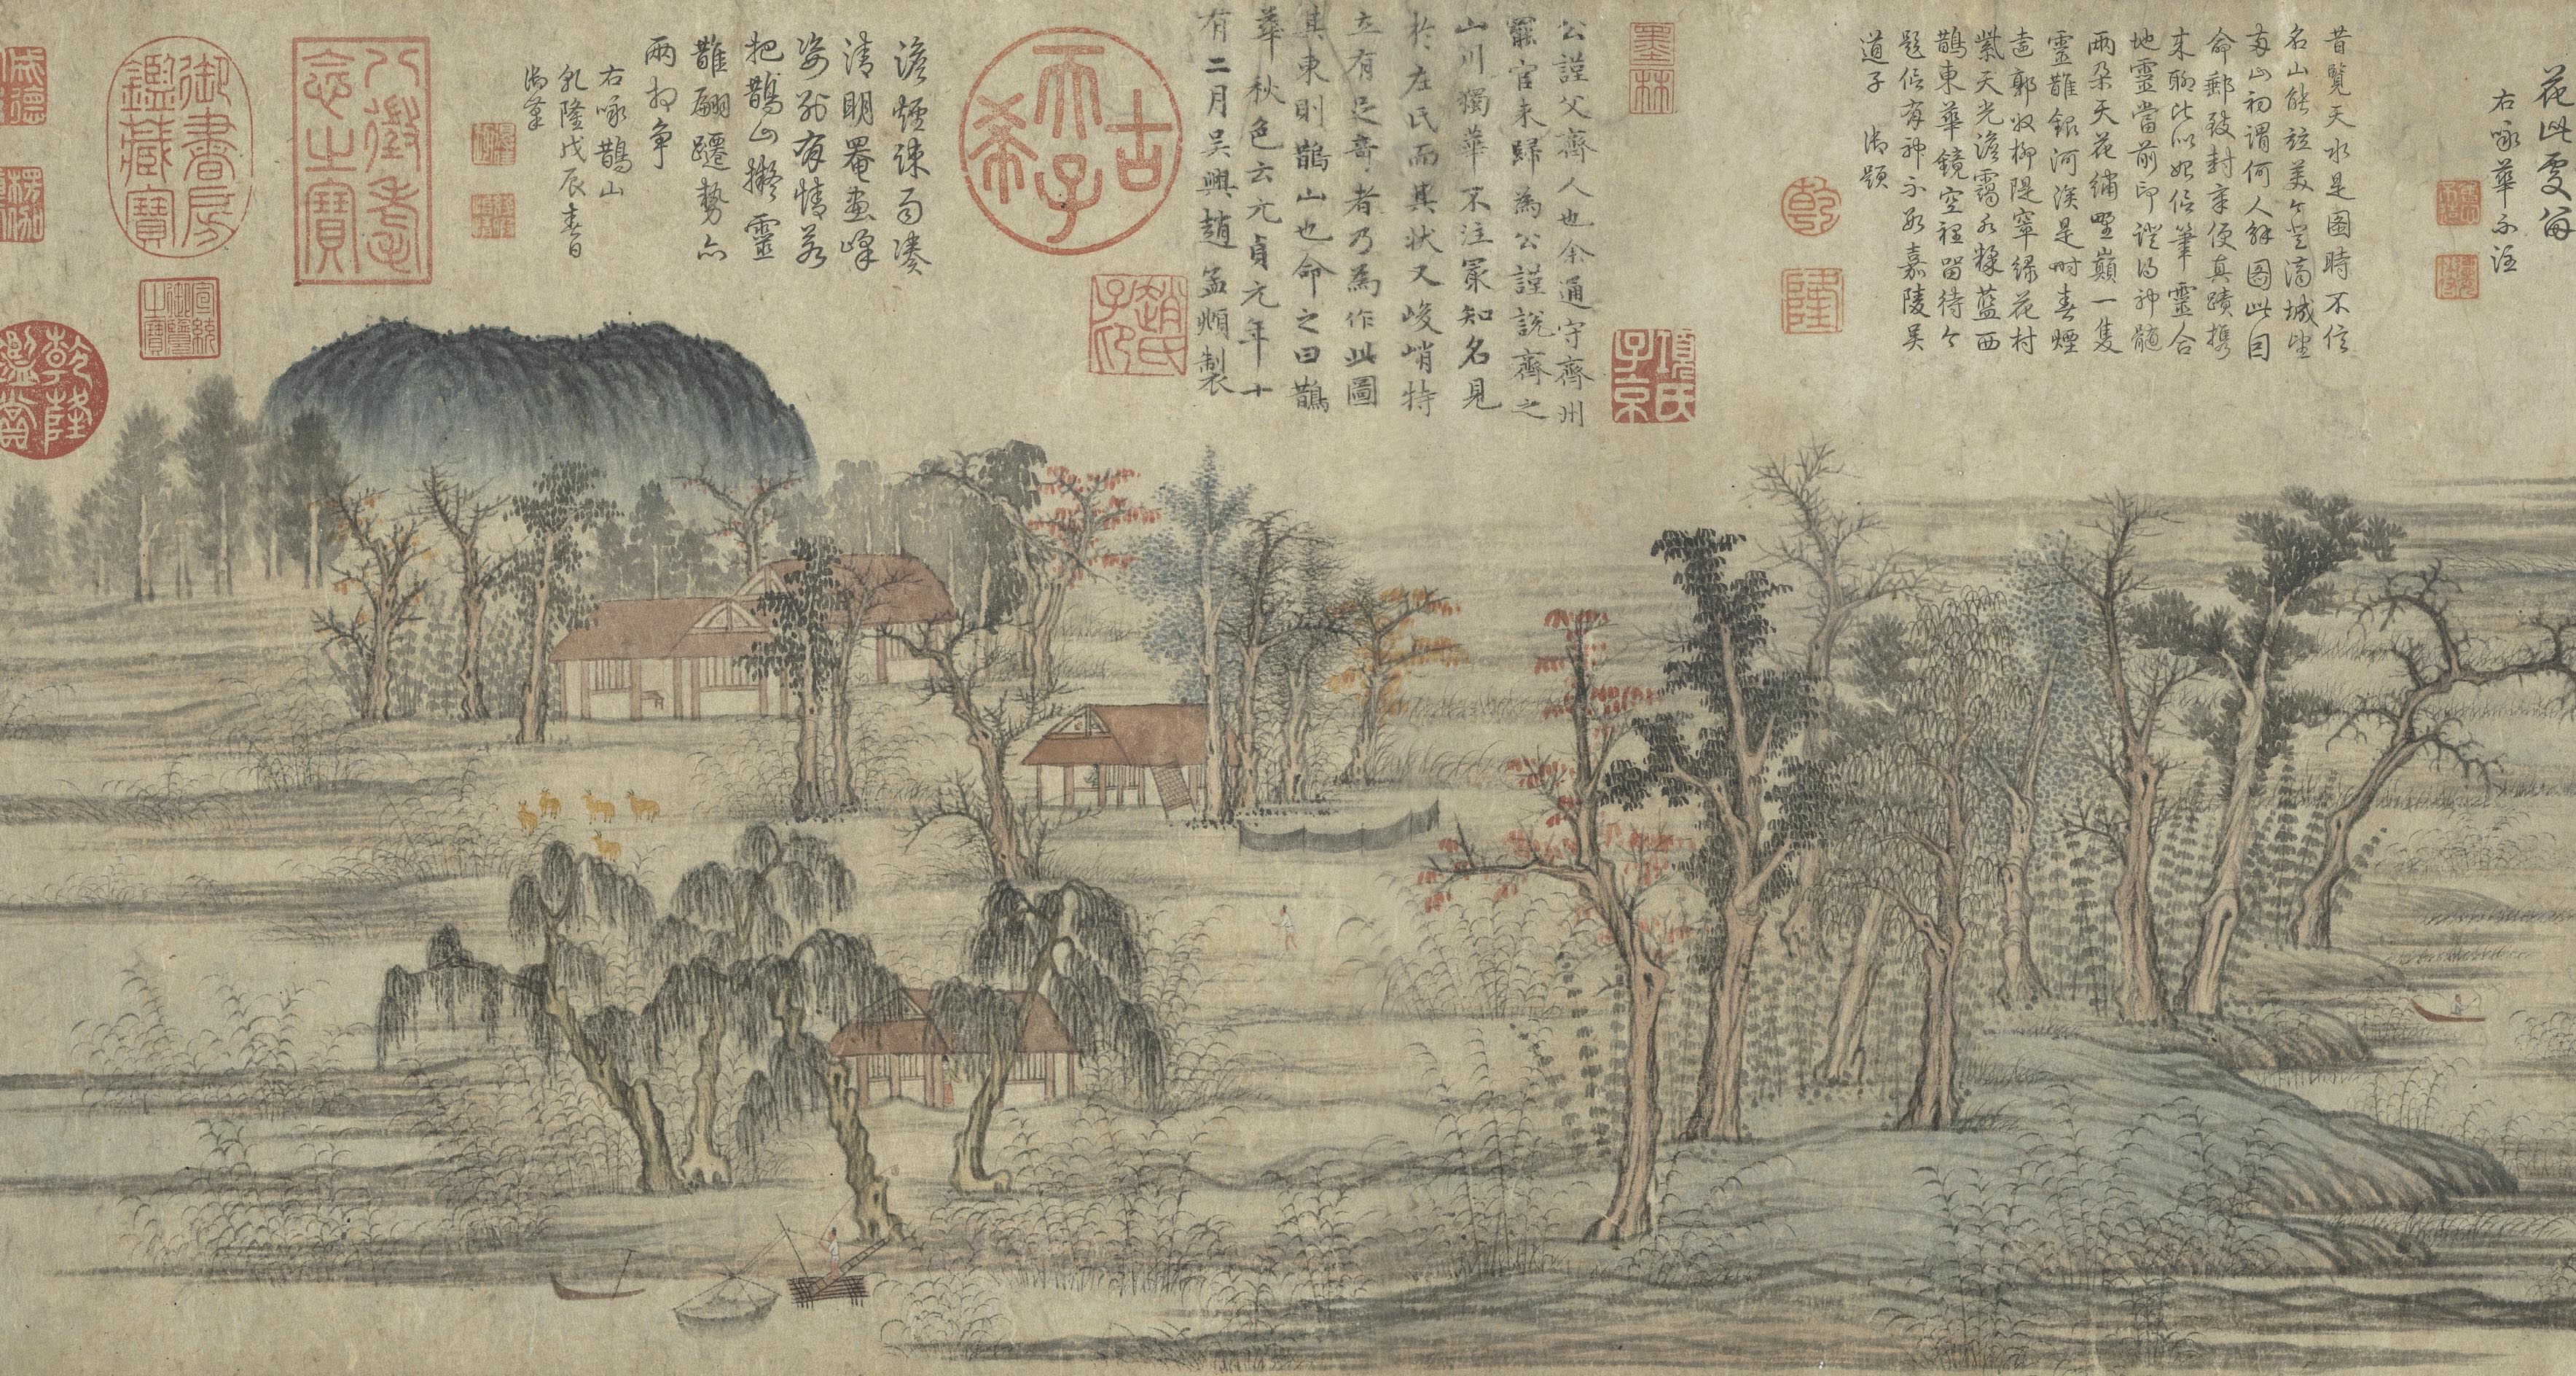 花此處留
右咏華不注
昔覽天水是圖時不信
名山能竝美今登濟城望
兩山初謂何人解圖此因
命郵致封章便真蹟攜
來聊比似始信筆靈合
地靈當前印證得神髓
兩朶天花繡野巔一隻
靈鵲銀河涘是時春煙
遠郭收柳隄窣綠花村
紫天光澹靄水糅藍西
鵲東華鏡空裡留待今
題信有神不數嘉陵吳
道子 御題
乾
隆
墨林
項氏子京
公謹父齊人也余通守齊州
罷官來歸為公謹說齊之
山川獨華不注冣知名見
於左氏而其狀又峻峭特
立有足奇者乃為作此圖
其東則鵲山也命之曰鵲
華秋色云元貞元年十
有二月吳興趙孟頫製
趙氏子印
古希天子
澹煙疎雨湊
清明罨畫峰
姿別有情若
把鵲山擬靈
鵲翩躚勢亦
兩相爭
右咏鵲山
乾隆戊辰春日
御筆
八徵耄念之寶
御書房鑑藏寶
宣統御覽之寶
乾隆鑑賞